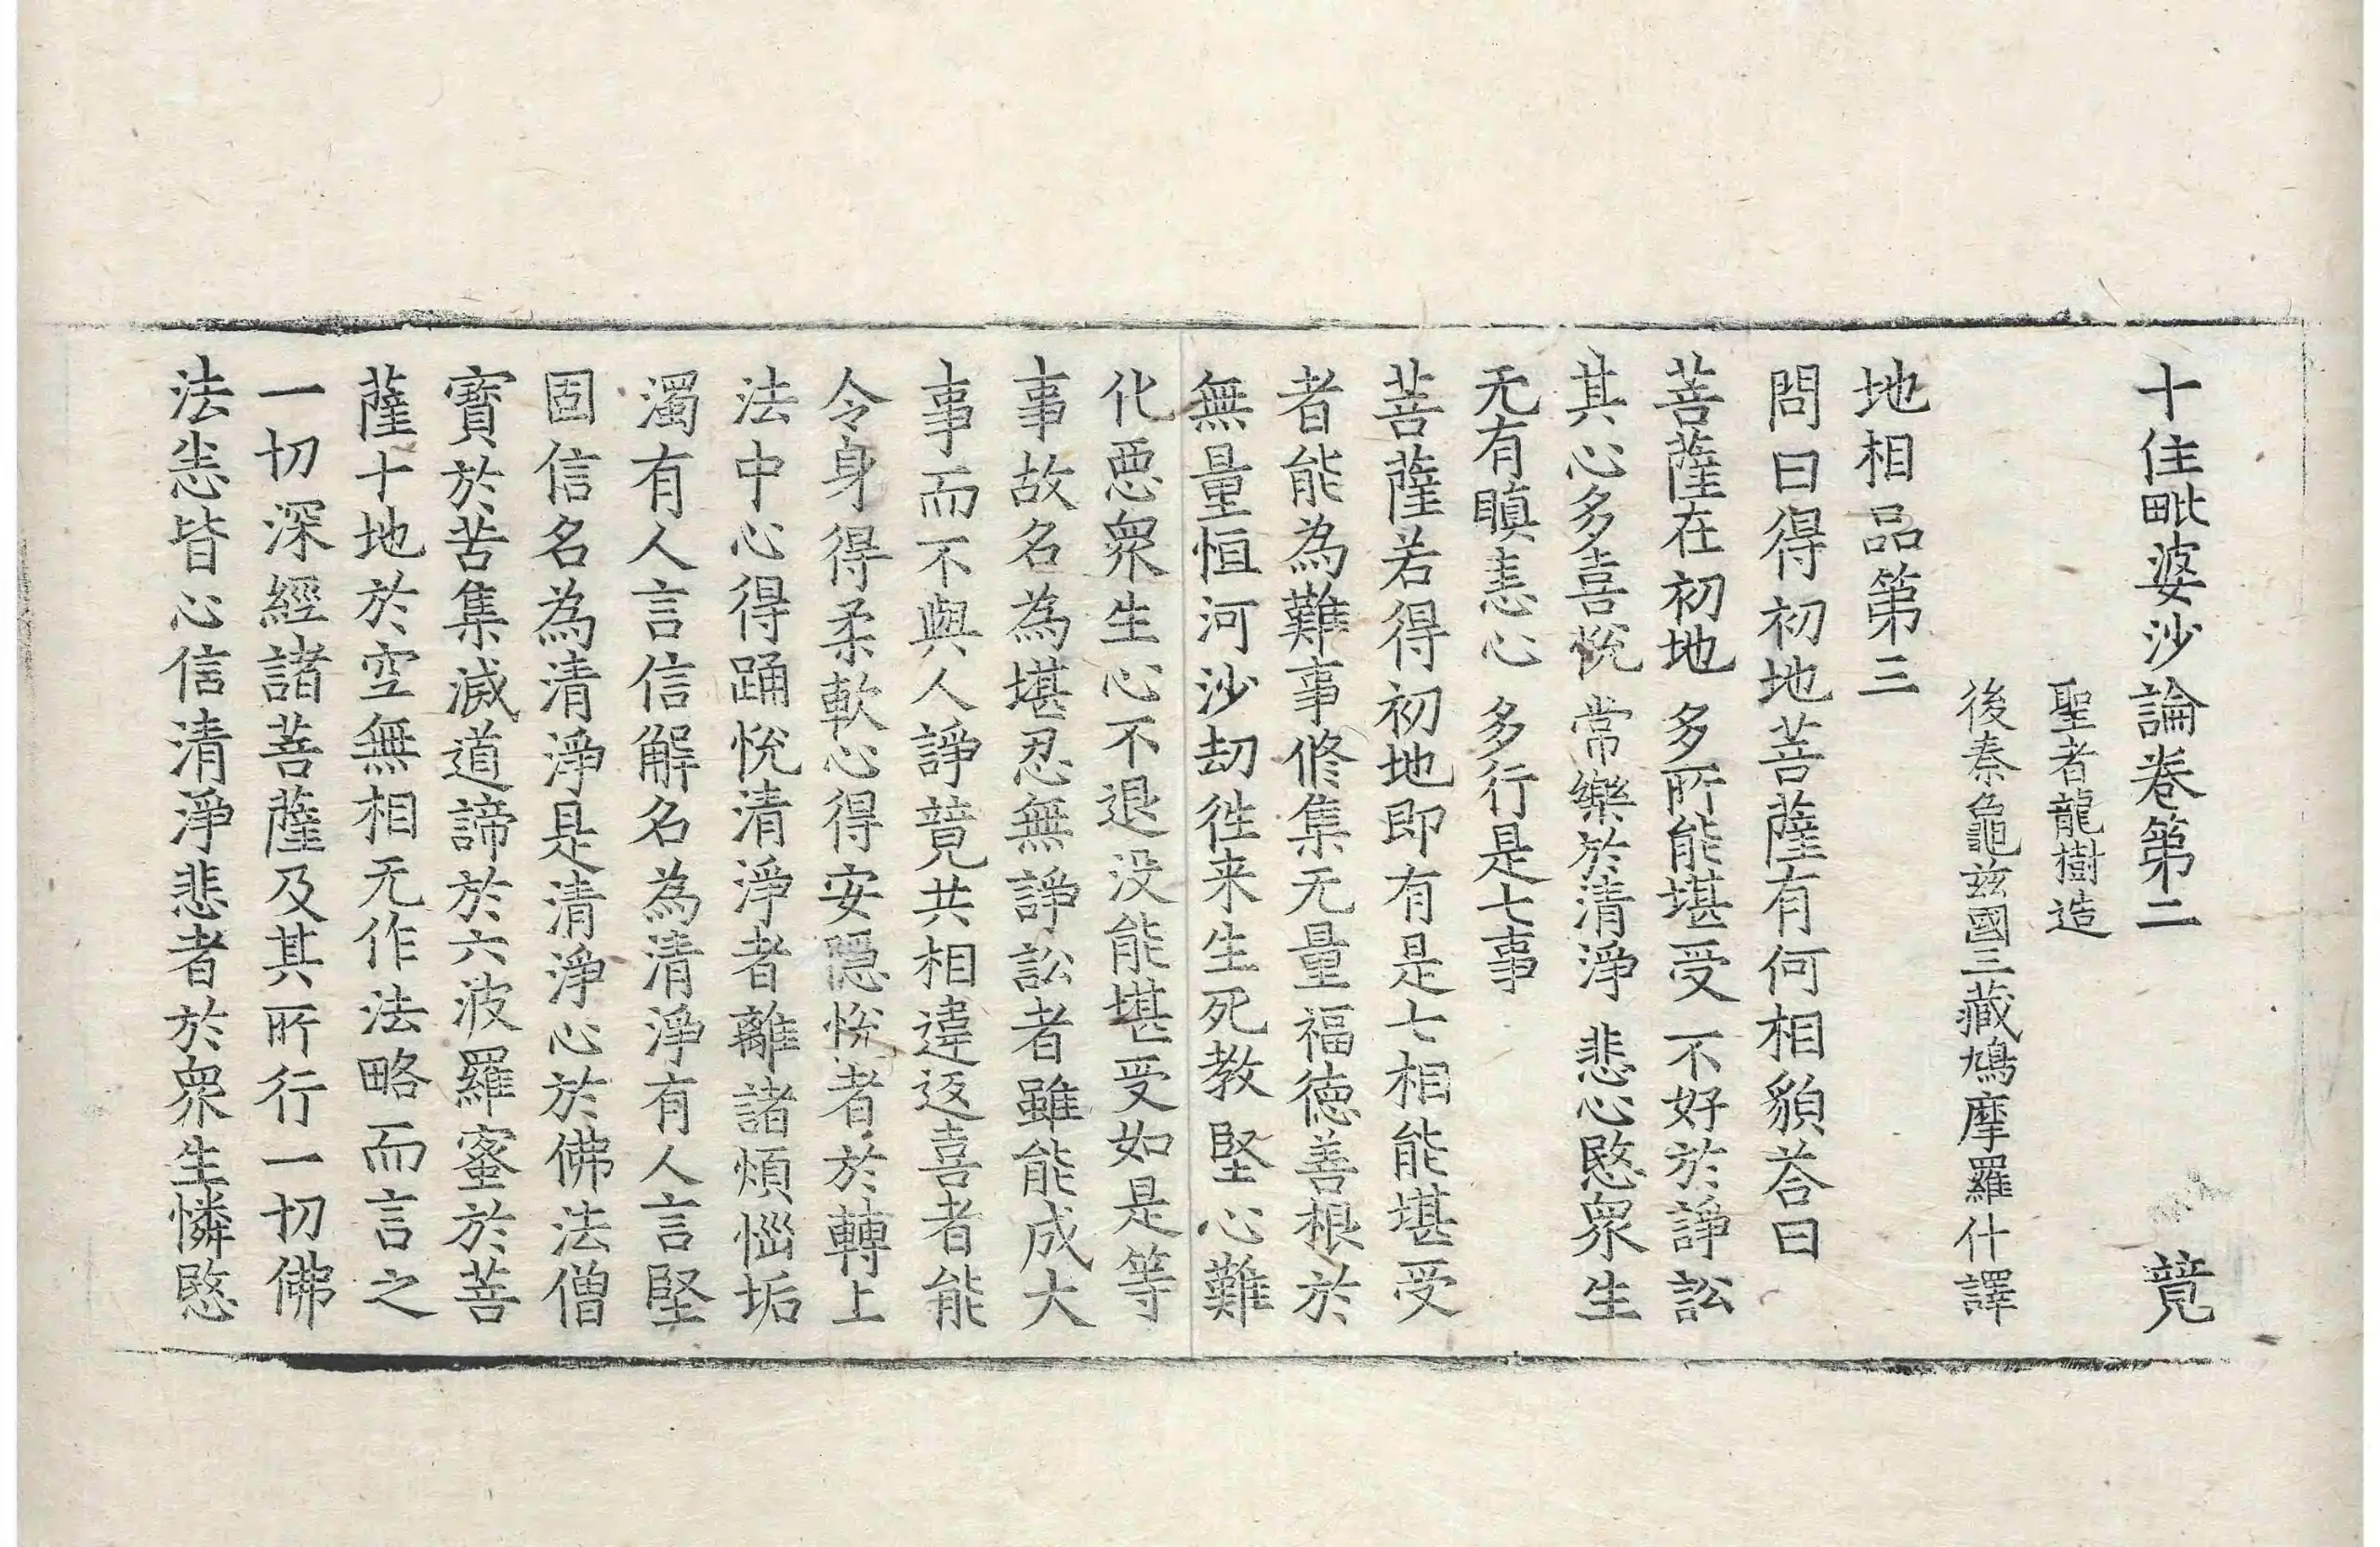 十住毗婆沙論卷第二　競
聖者龍樹造
後秦龜茲國三藏鳩摩羅什譯
地相品第三
問曰得初地菩薩有何相貌荅曰
菩薩在初地　多所能堪受　不好於諍訟
其心多喜悅　常樂於清淨　悲心愍衆生
无有瞋恚心　多行是七事
菩薩若得初地即有是七相能堪受
者能為難事修集无量福德善根於
無量恒河沙劫徃来生死教堅心難
化惡衆生心不退没能堪受如是等
事故名為堪忍無諍訟者雖能成大
事而不與人諍競共相違返喜者能
令身得柔軟心得安隱悅者於轉上
法中心得踊悅清淨者離諸煩惱垢
濁有人言信解名為清淨有人言堅
固信名為清淨是清淨心於佛法僧
寶於苦集滅道諦於六波羅蜜於菩
薩十地於空無相无作法略而言之
一切深經諸菩薩及其所行一切佛
法悉皆心信清淨悲者於衆生憐愍